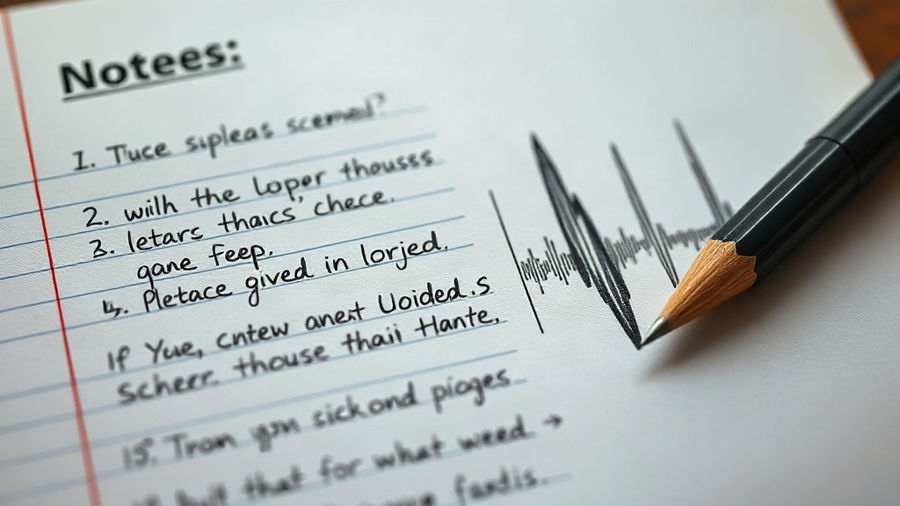 Notees:
1. Tuce sipleas scemed?
2. wiilh the loper thousss
3. letars thaics' chece.
gane feep.
4. Pletace gived in lorjed.
If Yue, cntew anext Uoided.s
Scheer thouse thaii Hante,
15. Tran gyn sickond pioges
that for what weed →
fandis.